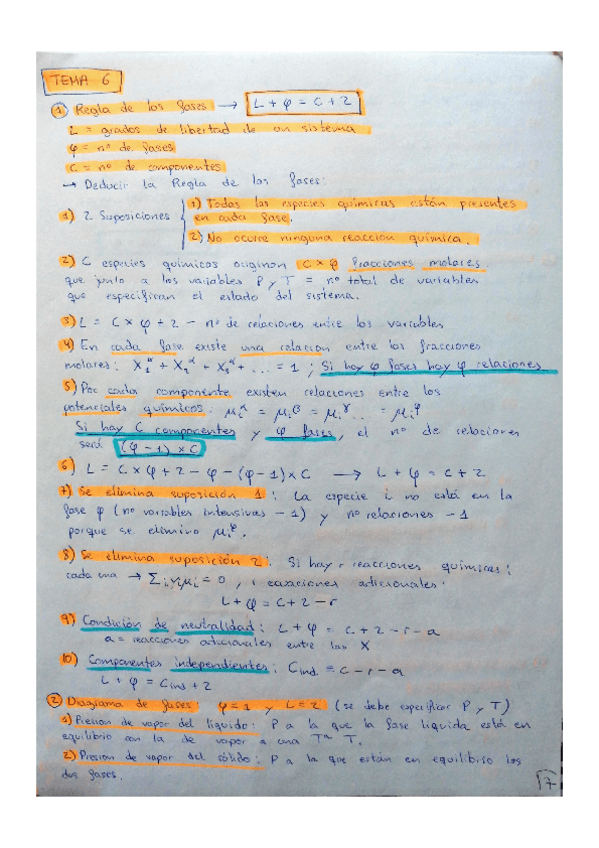 TEMA 6
① Regla de las fases → L + φ = C + 2
L = grados de libertad de un sistema
φ = nº de fases
C = nº de componentes
→ Deducir la Regla de las fases:
1) 2 Suposiciones
1) Todas las especies químicas están presentes
en cada fase.
2) No ocurre ninguna reacción química.
2) C especies químicas originan C × φ fracciones molares
que junto a las variables P y T = nº total de variables
que especifican el estado del sistema.
3) L = C × φ + 2 - nº de relaciones entre las variables
4) En cada fase existe una relación entre las fracciones
molares: X₁^α + X₂^α + X₃^α + ... = 1 ; Si hay φ fases hay φ relaciones
5) Por cada componente existen relaciones entre los
potenciales químicos: μᵢ^α = μᵢ^β = μᵢ^γ ... = μᵢ^φ
Si hay C componentes y φ fases, el nº de relaciones
será (φ - 1) × C
6) L = C × φ + 2 - φ - (φ - 1) × C → L + φ = C + 2
7) Se elimina suposición 1: La especie i no está en la
fase φ (nº variables intensivas - 1) y nº relaciones - 1
porque se elimina μᵢ^φ.
8) Se elimina suposición 2: Si hay r reacciones químicas:
cada una → Σᵢ νᵢμᵢ = 0, r ecuaciones adicionales:
L + φ = C + 2 - r
9) Condición de neutralidad: L + φ = C + 2 - r - a
a = reacciones adicionales entre las X
10) Componentes independientes: Cind. = C - r - a
L + φ = Cind + 2
② Diagrama de fases: φ = 1 y L = 2 (se debe especificar P y T)
1) Presión de vapor del líquido: P a la que la fase líquida está en
equilibrio con la de vapor a una Tª T.
2) Presión de vapor del sólido: P a la que están en equilibrio las
dos fases.